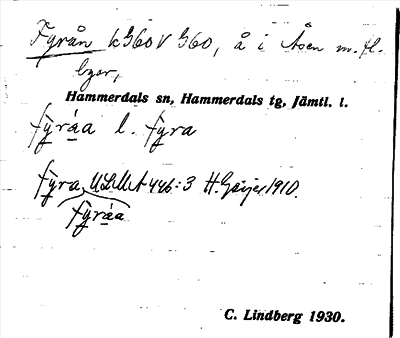 Fyrån k 360 V 360, å i Åsen m. fl.
byar,
Hammerdals sn, Hammerdals tg, Jämtl. l.
fy̱rá̱a l. fy̱ra
fy̱ra ULMA 446:3 H. Geijer 1910.
fy̱rá̱a
C. Lindberg 1930.